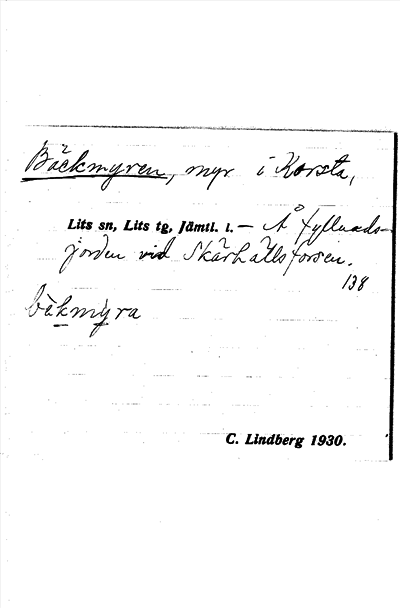 Bäckmyren, myr i Korsta,
Lits sn, Lits tg, Jämtl. l. – Å fyllnads-
jorden vid Skärhällsforsen.
138
bäkmyra
C. Lindberg 1930.